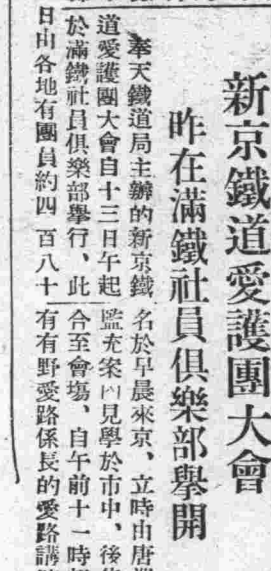 新京鐵道愛護團大會
昨在滿鐵社員俱樂部舉開
奉天鐵道局主辦的新京鐵
道愛護團大會自十三日午起
於滿鐵社員俱樂部舉行、此
日由各地有團員約四百八十
名於早晨來京、立時由唐
監充案內見學於市中、後
合至會場、自午前十一時
有有野愛路係長的愛路講